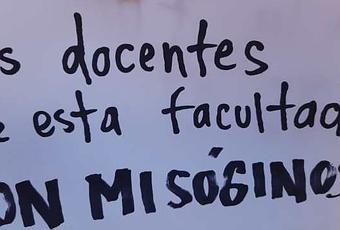 s docentes
e esta facultad
ON MISÓGINOS